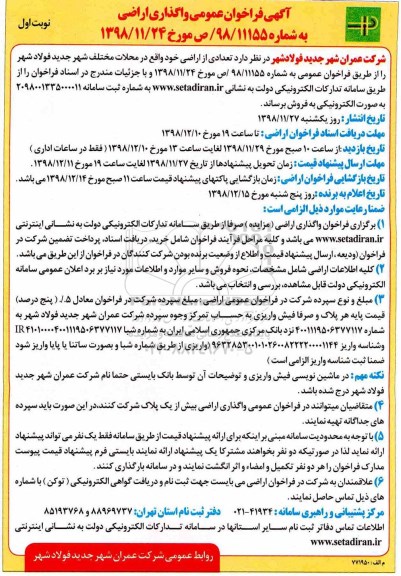 آگهی فراخوان عمومی واگذاری اراضی
به شماره ۹۸/۱۱۱۵۵/ ص مورخ ۱۳۹۸/۱۱/۲۴
نوبت اول
شرکت عمران شهر جدید فولادشهر در نظر دارد تعدادی از اراضی خود واقع در محلات مختلف شهر جدید فولاد شهر
را از طریق فراخوان عمومی به شماره ۹۸/۱۱۱۵۵ /ص مورخ ۱۳۹۸/۱۱/۲۴ و با جزئیات مندرج در اسناد فراخوان را از
طریق سامانه تدارکات الکترونیکی دولت به نشانی www.setadiran.ir به شماره ثبت سامانه ۲۰۹۸۰۰۱۳۳۵۰۰۰۰۱۱
به صورت الکترونیکی به فروش برساند.
تاریخ انتشار: روز یکشنبه ۱۳۹۸/۱۱/۲۷
مهلت دریافت اسناد فراخوان اراضی : تا ساعت ۱۹ مورخ ۱۳۹۸/۱۲/۱۰
تاریخ بازدید :از ساعت ۱۰ صبح مورخ ۱۳۹۸/۱۱/۲۹ لغایت ساعت ۱۳ مورخ ۱۳۹۸/۱۲/۱۰ ( فقط در ساعات اداری )
مهلت ارسال پیشنهاد قیمت : زمان تحویل پیشنهادها از تاریخ ۱۳۹۸/۱۱/۲۷ لغایت ساعت ۱۹ مورخ ۱۳۹۸/۱۲/۱۱
تاریخ بازگشایی فراخوان اراضی: زمان بازگشایی پاکتهای پیشنهاد قیمت ساعت ۱۱ صبح مورخ ۱۳۹۸/۱۲/۱۴ می باشد.
تاریخ اعلام به برنده: روز پنج شنبه مورخ ۱۳۹۸/۱۲/۱۵
ضمنا رعایت موارد ذیل الزامی است:
۱) برگزاری فراخوان واگذاری اراضی (مزایده ) صرفا از طریق سامانه تدارکات الکترونیکی دولت به نشانی اینترنتی
www.setadiran.ir می باشد و کلیه مراحل فرآیند فراخوان شامل خرید، دریافت اسناد، پرداخت تضمین شرکت در
فراخوان (ودیعه ، ارسال پیشنهاد قیمت و اطلاع از وضعیت برنده بودن شرکت کنندگان در فراخوان از این طریق می باشد.
۲) کلیه اطلاعات اراضی شامل مشخصات، نحوه فروش و سایر موارد و اطلاعات مورد نیاز بر برد اعلان عمومی سامانه
الکترونیکی دولت قابل مشاهده، بررسی و انتخاب می باشد.
۳) مبلغ و نوع سپرده شرکت در فراخوان عمومی اراضی : مبلغ سپرده شرکت در فراخوان معادل ۵٪ ( پنج درصد)
قیمت پایه هر پلاک و صرفا فیش واریزی به حساب تمرکز وجوه سپرده شرکت عمران شهر جدید فولاد شهر به
نزد بانک مرکزی جمهوری اسلامی ایران به شماره شبا
(واریزی از طریق شماره شبا و بصورت ساتنا یا پایا واریز شود
ضمنا ثبت شناسه واریز الزامی است )
نکته مهم : در ماشین نویسی فیش واریزی و توضیحات آن توسط بانک بایستی حتما نام شرکت عمران شهر جدید
فولاد شهر درج شده باشد.
۴) متقاضیان میتوانند در فراخوان عمومی واگذاری اراضی بیش از یک پلاک شرکت کنند،در این صورت باید سپرده
های جداگانه تهیه نمایند.
۵) با توجه به محدودیت سامانه مبنی بر اینکه برای ارائه پیشنهاد قیمت از طریق سامانه فقط یک نفر می تواند پیشنهاد
ارائه نماید لذا در صورتیکه دو نفر بخواهند مشترکا یک پیشنهاد ارائه نمایند بایستی فرم پیشنهاد قیمت پیوست
مدارک فراخوان را هر دو نفر تکمیل و امضاء و اثر انگشت نمایند و در سامانه بارگذاری کنند.
۶) علاقمندان به شرکت در فراخوان اراضی می بایست جهت ثبت نام و دریافت گواهی الکترونیکی ( توکن ) با شماره
های ذیل تماس حاصل نمایند.
مرکز پشتیبانی و راهبری سامانه : ۴۱۹۳۴-۰۲۱ دفتر ثبت نام استان تهران: ۸۸۹۶۹۷۳۷ و ۸۵۱۹۳۷۶۸
اطلاعات تماس دفاتر ثبت نام سایر استانها در سامانه تدارکات الکترونیکی دولت به نشانی اینترنتی
setadiran.ir
م الف: ۷۷۱۹۵۰
روابط عمومی شرکت عمران شهر جدید فولاد شهر